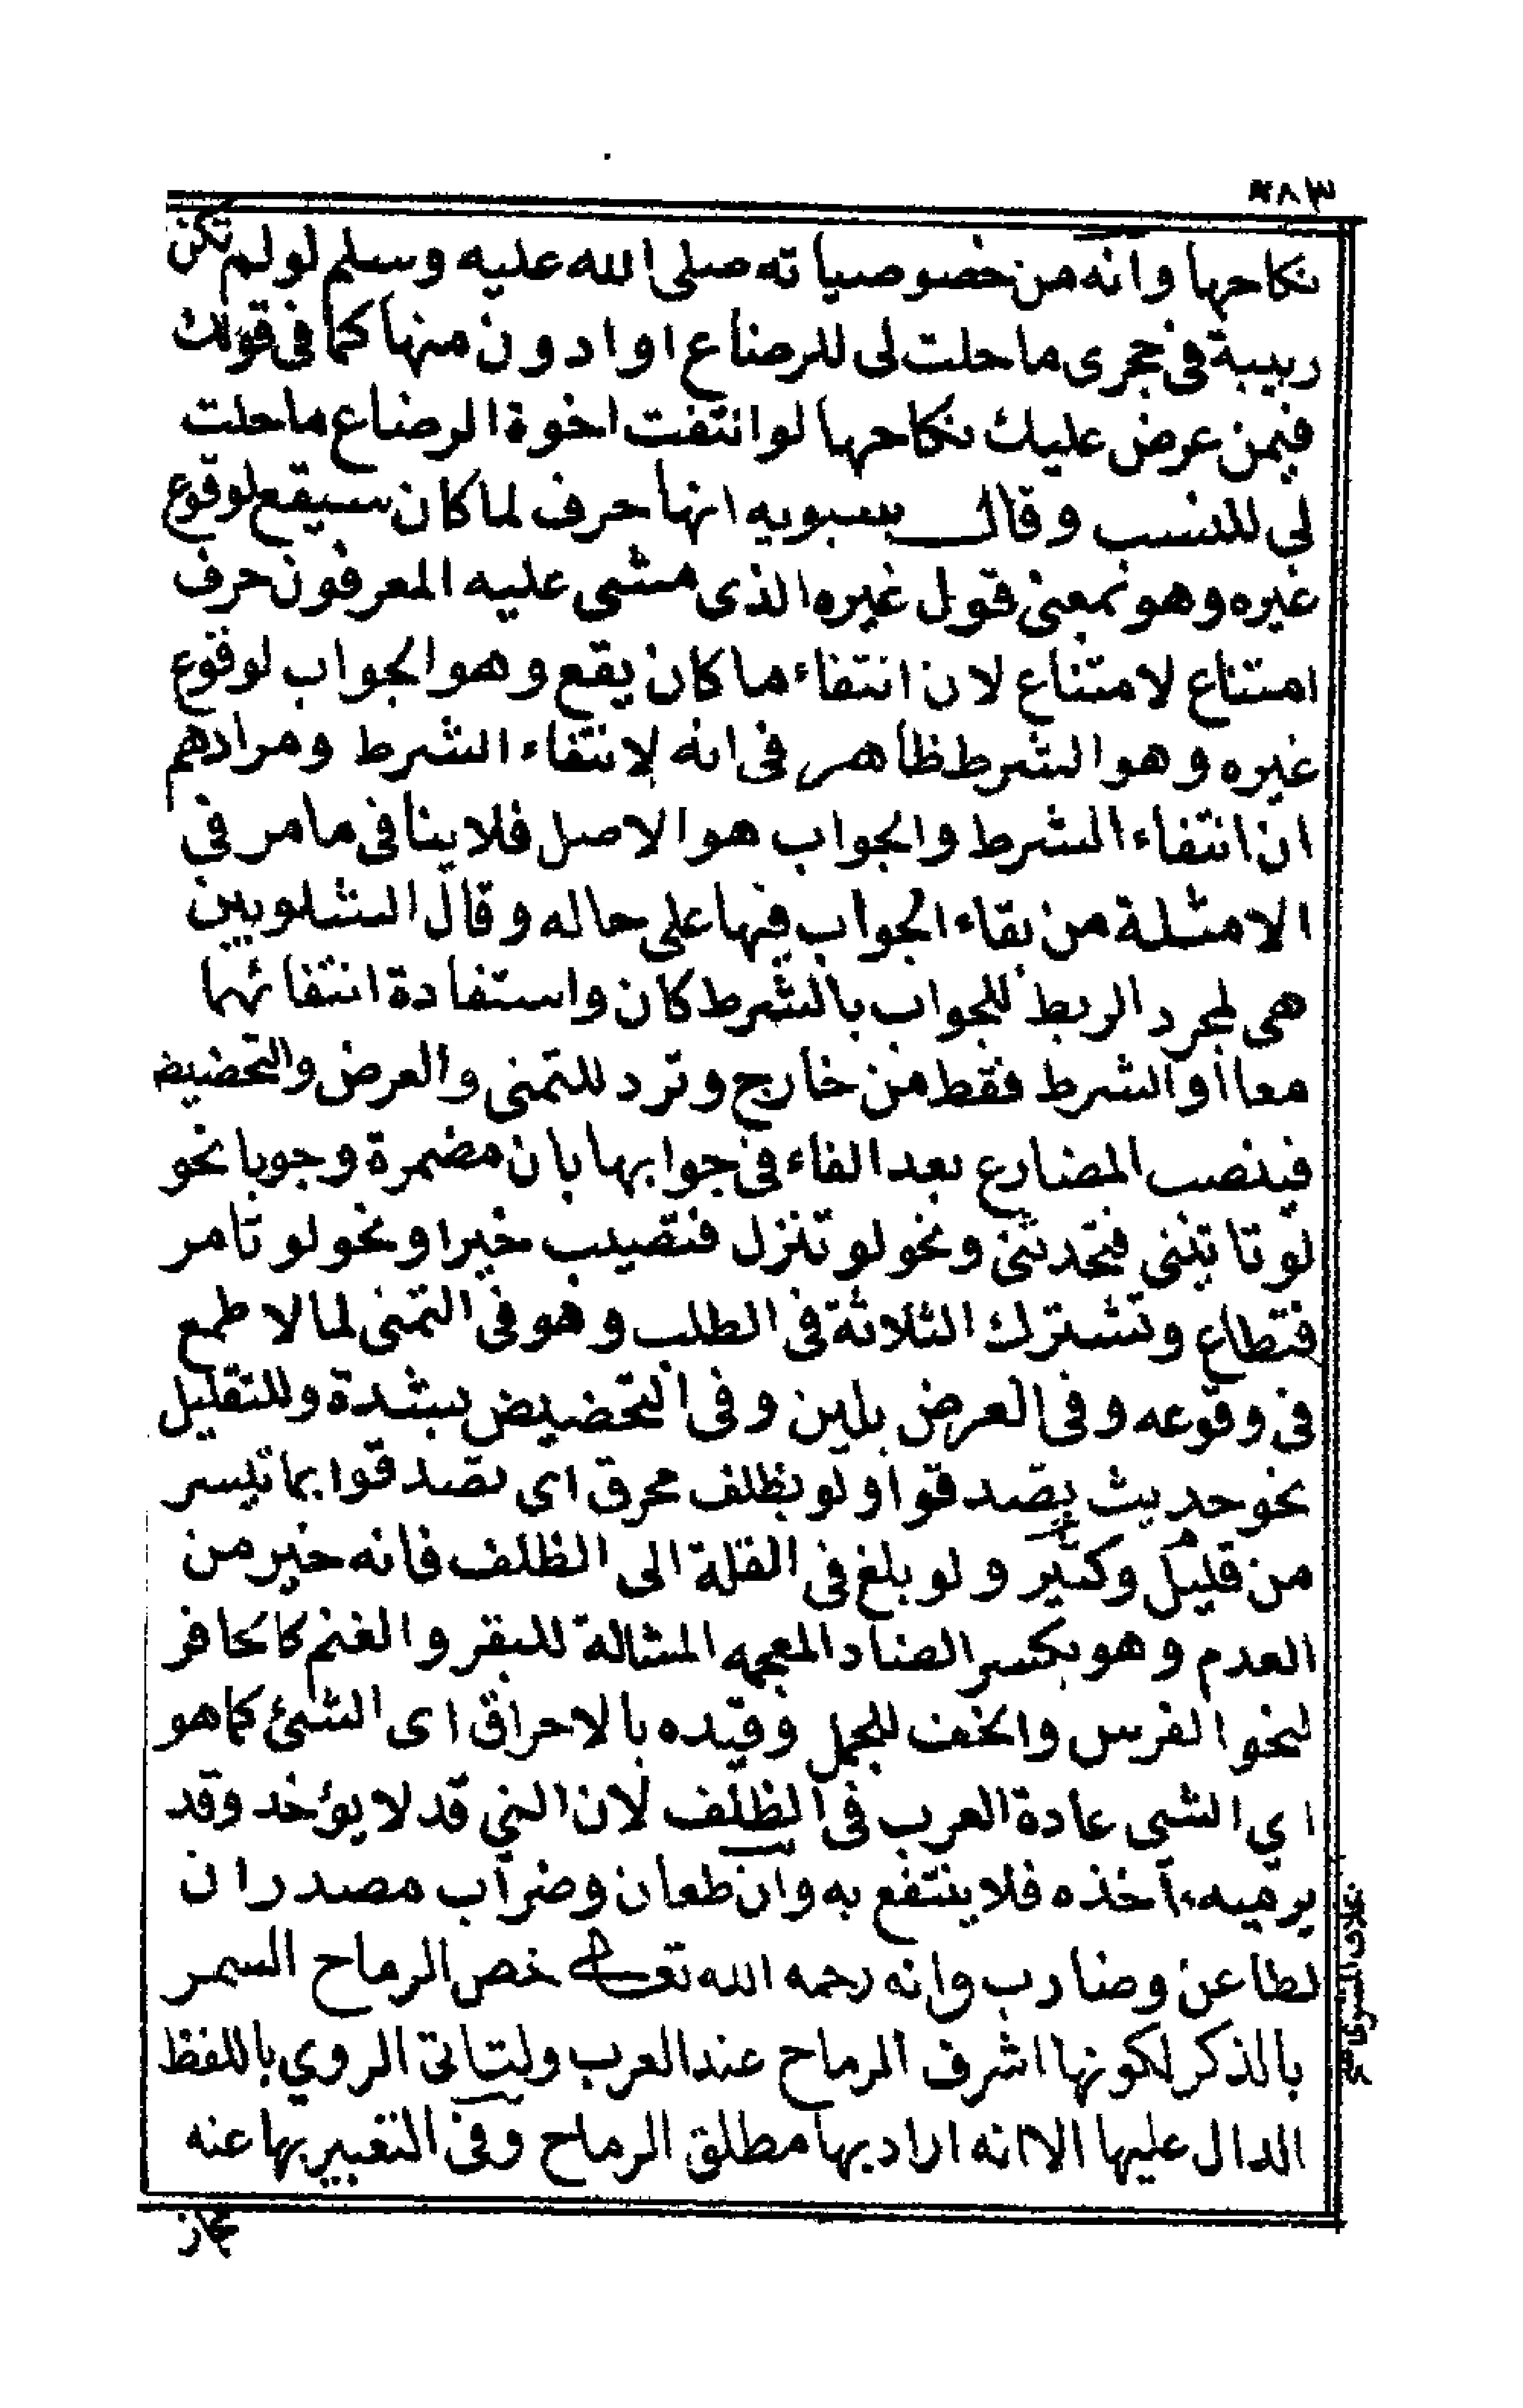 ٤٨٣
نكاحها وانه من خصوصياته صلى الله عليه وسلم لو لم تكن
ربيبة فى حجرى ما حلت لى للرضاع او ادون منها كما فى قولك
فيمن عرض عليك نكاحها لو انتفت اخوة الرضاع ما حلت
لي للنسب وقال سيبويه انها حرف لما كان سيقع لوقوع
غيره وهو بمعنى قول غيره الذى مشى عليه المعرفون حرف
امتناع لامتناع لان انتفاء ما كان يقع وهو الجواب لوقوع
غيره وهو الشرط ظاهر فى انه لانتفاء الشرط ومرادهم
ان انتفاء الشرط والجواب هو الاصل فلا ينافى ما مر في
الامثلة من بقاء الجواب فيها على حاله وقال الشلوبين
هى لمجرد الربط للجواب بالشرط كان واستفادة انتفائهما
معا أو الشرط فقط من خارج وترد للتمنى والعرض والتحضيض
فينصب المضارع بعد الفاء فى جوابها بان مضمرة وجوبا نحو
لو تاتينى فتحدثنى ونحو لو تنزل فتصيب خيرا ونحو لو تامر
فتطاع وتشترك الثلاثة فى الطلب وهو فى التمنى لما لا طمع
فى وقوعه وفى العرض بلين وفى التحضيض بشدة وللتقليل
نحو حديث تصدقوا ولو بظلف محرق اى تصدقوا بما تيسر
من قليل وكثير ولو بلغ فى القلة الى الظلف فانه خير من
العدم وهو بكسر الضاد المعجمه المشالة للبقر والغنم كالحافر
لنحو الفرس والخف للجمل وقيده بالاحراق اى الشئ كما هو
اي الشى عادة العرب فى الظلف لان الني قد لا يؤخذ وقد
يرميه آخذه فلا ينتفع به وان طعان وضراب مصدران
لطاعن وضارب وانه رحمه الله تعالى خص الرماح السمر
بالذكر لكونها اشرف الرماح عند العرب وليتاتى الروي باللفظ
الدال عليها الا انه اراد بها مطلق الرماح وفى التعبير بها عنه
مجاز